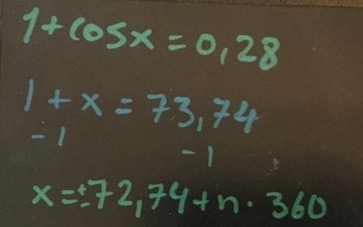 1+cosx=0,28
1+x=73,74
-1 -1
x=±72,74+n·360